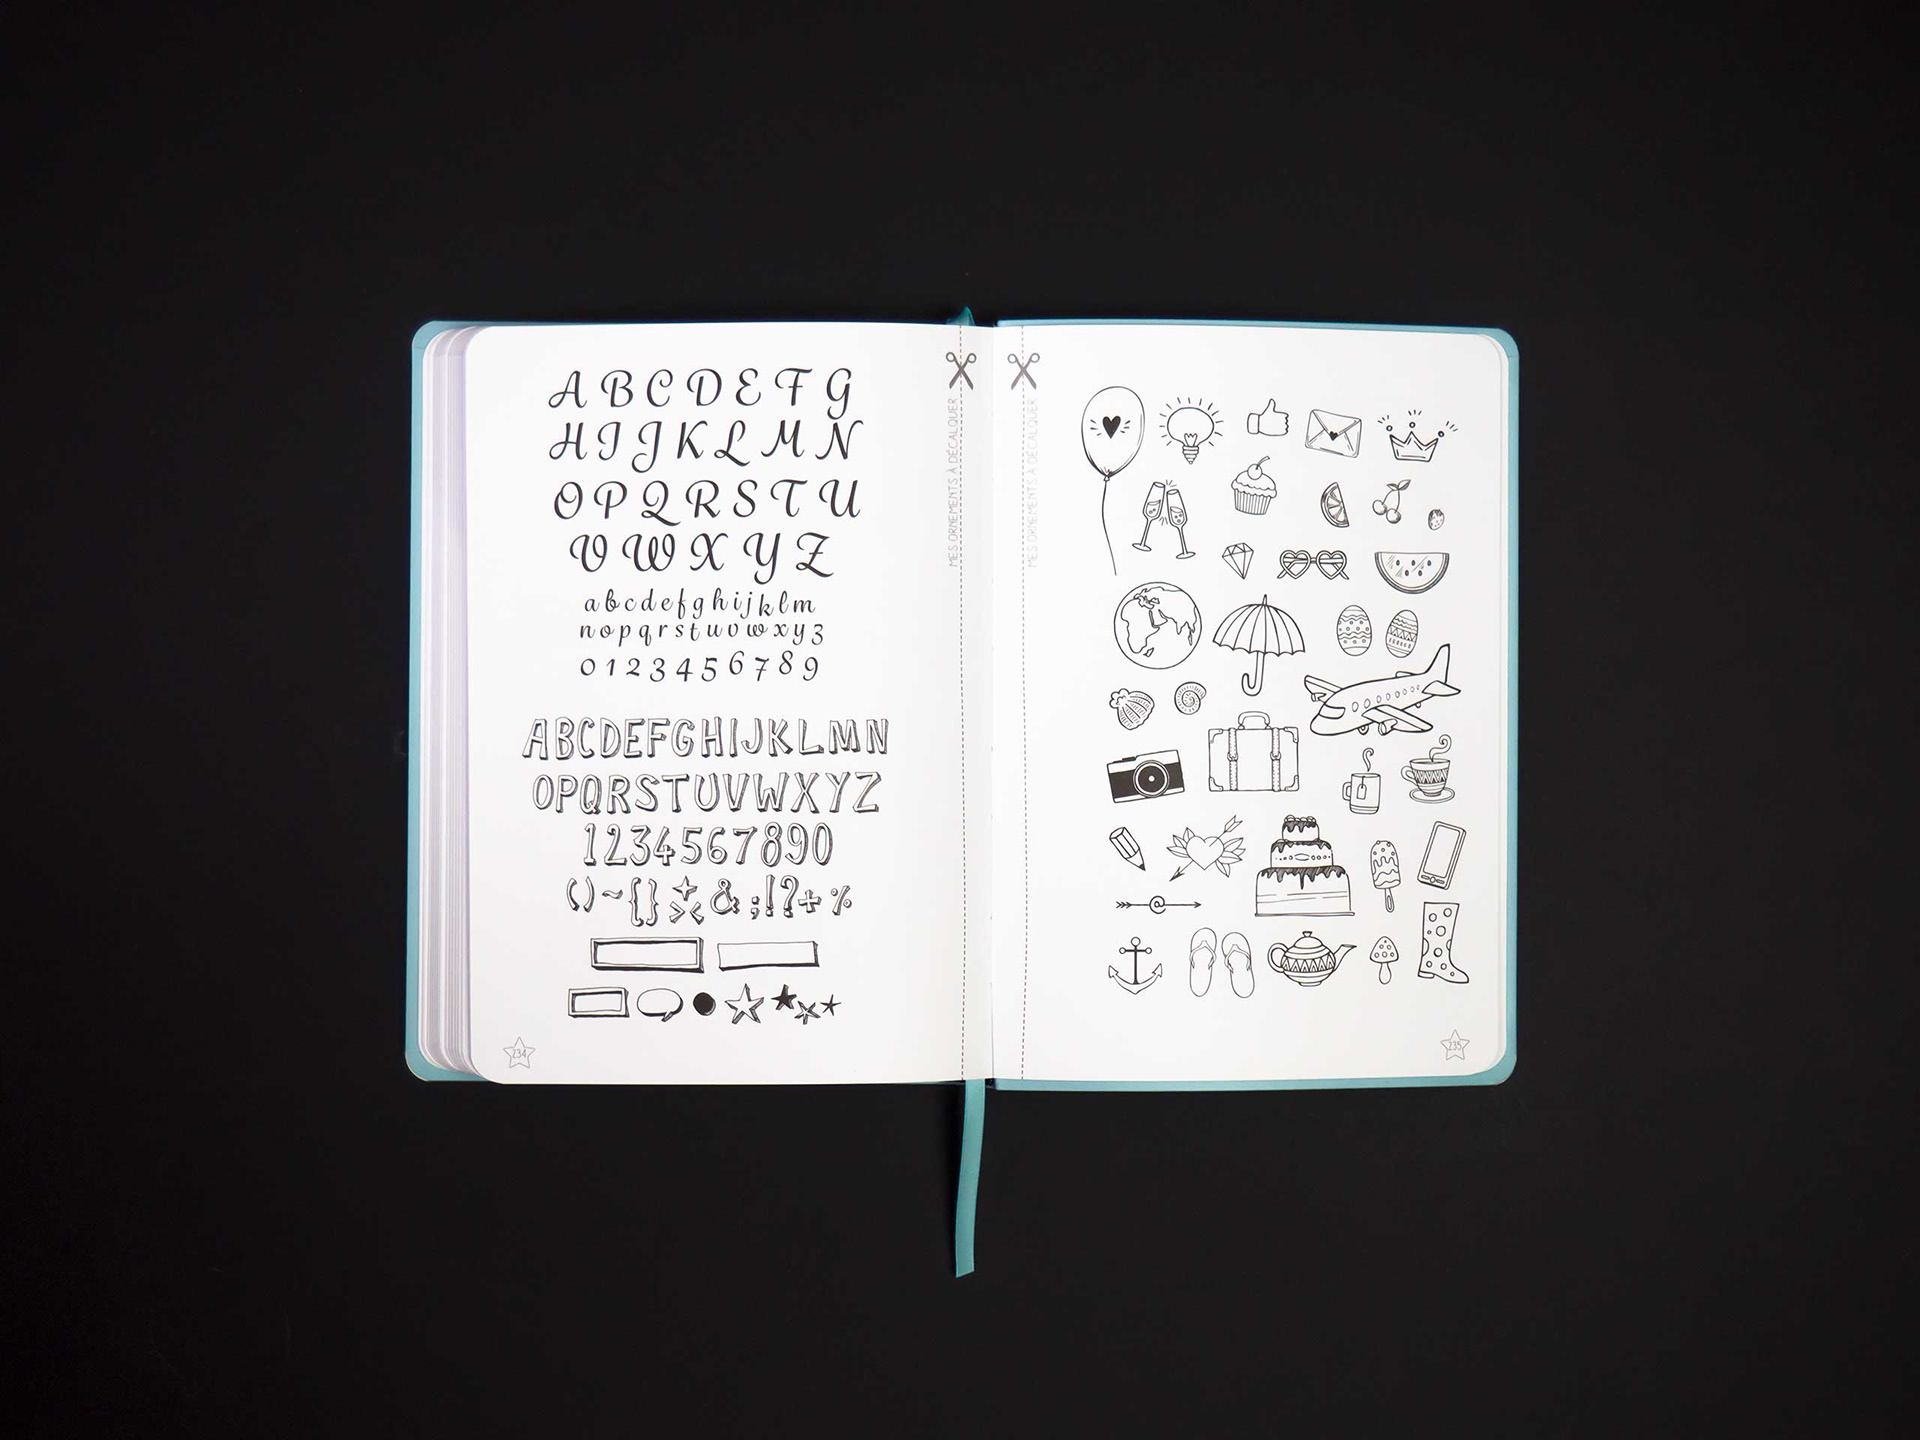 A B C D E F G
H I J K L M N
O P Q R S T U
V W X Y Z
a b c d e f g h i j k l m
n o p q r s t u v w x y z
0 1 2 3 4 5 6 7 8 9
ABCDEFGHIJKLMN
OPQRSTUVWXYZ
1234567890
()~{}+><&;!?+%
234
MES ORNEMENTS À DÉCALQUER
MES ORNEMENTS À DÉCALQUER
@
235